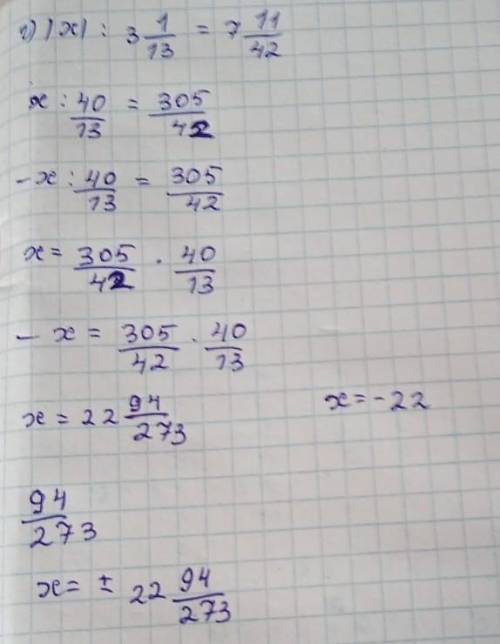 г) |x| : 3 1/13 = 7 11/42
x : 40/13 = 305/42
-x : 40/13 = 305/42
x = 305/42 · 40/13
- x = 305/42 · 40/13
x = 22 94/273 x = -22
94/273
x = ± 22 94/273